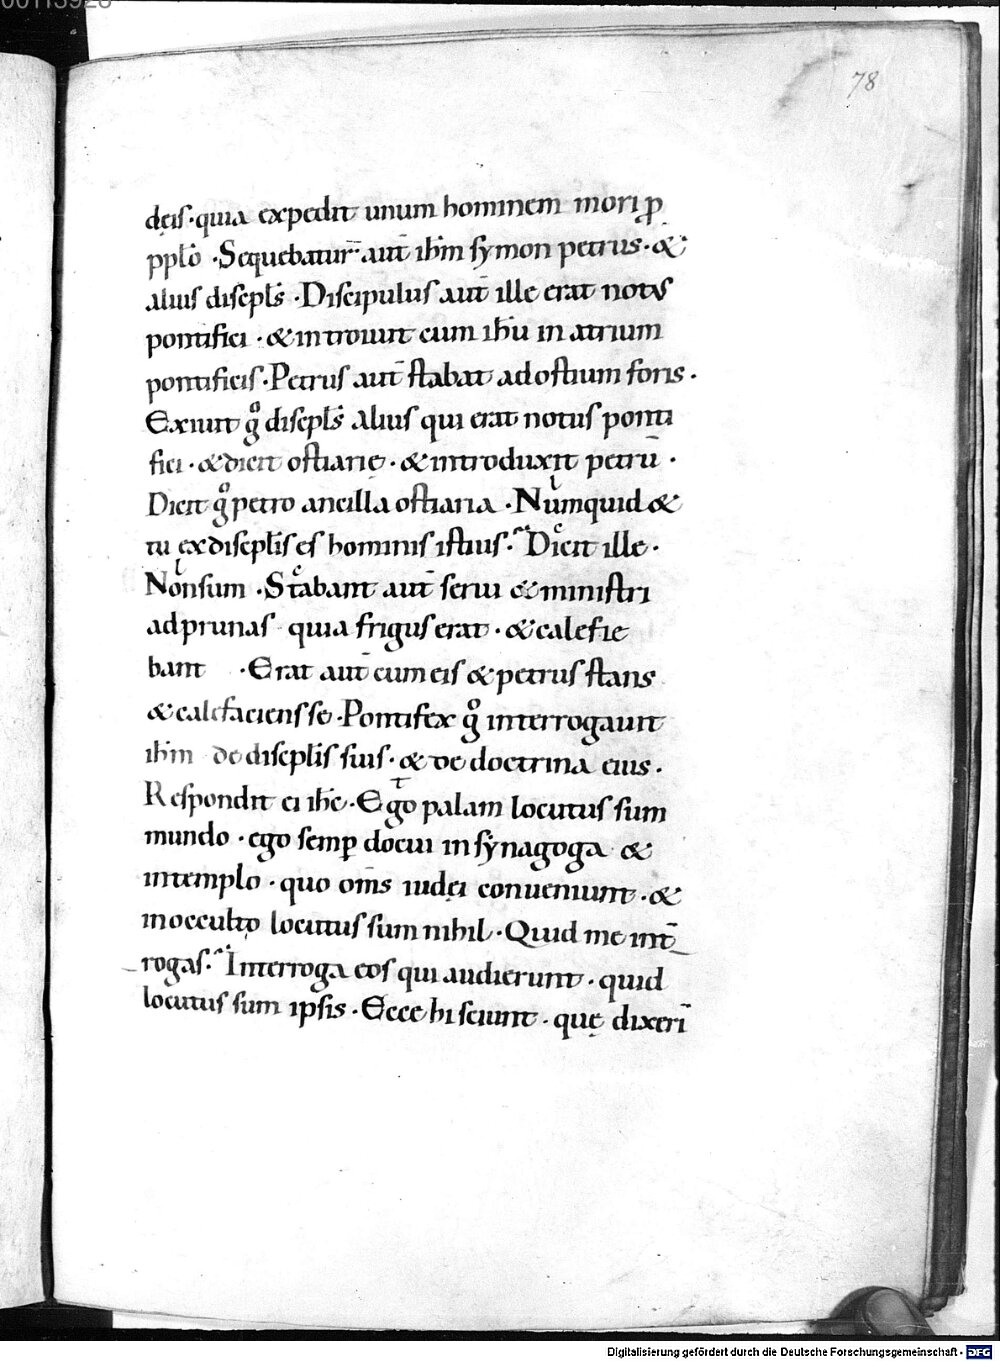 78
deis · quia expedit unum hominem mori ꝑ
pplo · Sequebatur · aut̄ ihm symon petrus · &
alius discipls̄ · Discipulus aut̄ ille erat notus
pontifici · & introiuit cum ihu in atrium
pontificis · Petrus aut̄ stabat ad ostium foris ·
Exiuit gͦ discipls̄ alius qui erat notus ponti
fici · & dicit ostiarię · & introduxit petrū ·
Dicit gͦ petro ancilla ostiaria · Numquid &
tu ex disciplis es hominis istius · Dicit ille ·
Non sum · Stabant aut̄ serui & ministri
ad prunas quia frigus erat · & calefie
bant · Erat aut̄ cum eis & petrus stans
& calefaciens se · Pontifex gͦ interrogauit
ihm de discipl̄is suis · & de doctrina eius ·
Respondit ei ihc · Ego palam locutus sum
mundo · ego semꝑ docui in synagoga &
in templo · quo om̄s iudęi conueniunt · &
in occulto locutus sum nihil · Quid me int̄
rogas · Interroga eos qui audierunt · quid
locutus sum ipsis · Ecce hi sciunt · quę dixerī
Digitalisierung gefördert durch die Deutsche Forschungsgemeinschaft - DFG